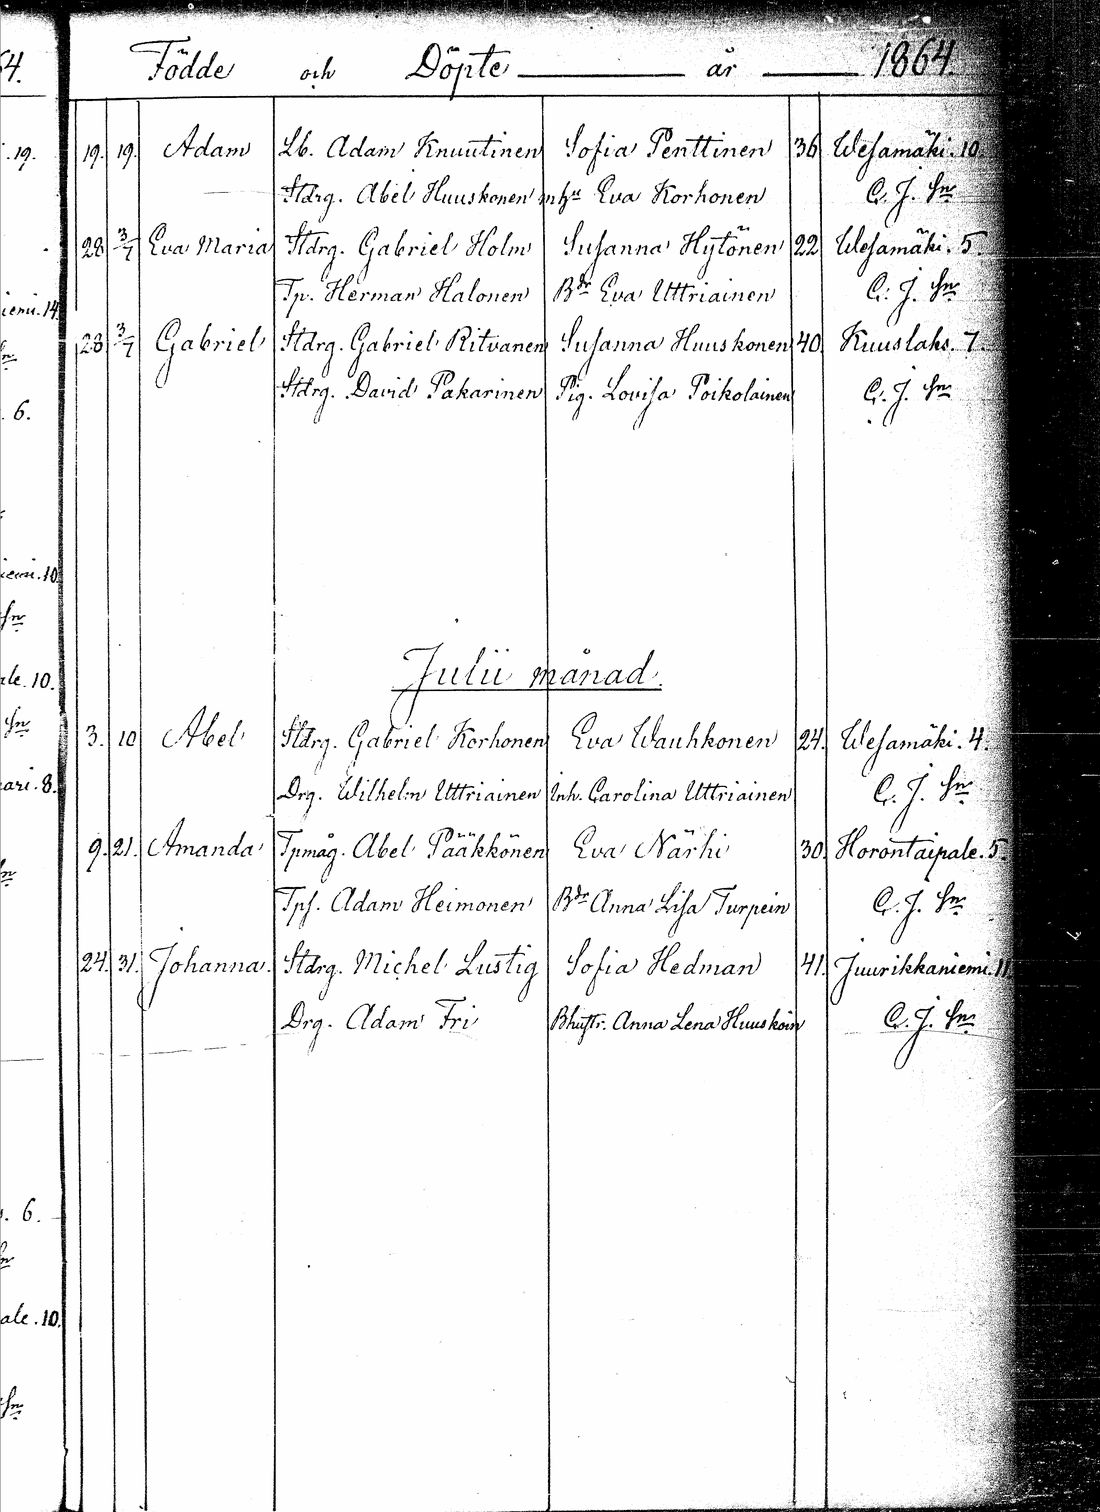 64.
Födde och Döpte år 1864.
19. 19. 19. Adam Lb. Adam Knuutinen Sofia Penttinen 36 Wesamäki. 10.
Stdrg. Abel Huuskonen mhu Eva Korhonen C. J. Sn
28 3/7 Eva Maria Stdrg. Gabriel Holm Susanna Hytönen 22 Wesamäki. 5.
iemi. 14 Tp. Herman Halonen Bdr Eva Uttriainen C. J. Sn
28 3/7 Gabriel Stdrg. Gabriel Ritvanen Susanna Huuskonen 40 Kuuslaks. 7.
6. Stdrg. David Pakarinen Pig. Lovisa Poikolainen C. J. Sn
iemi. 10
Sn
Julii månad.
ale. 10.
Sn 3. 10 Abel Stdrg. Gabriel Korhonen Eva Wauhkonen 24. Wesamäki. 4.
ari. 8. Drg. Wilhelm Uttriainen Inh. Carolina Uttriainen C. J. Sn
9. 21. Amanda Tpmåg. Abel Pääkkönen Eva Närhi 30. Horontaipale. 5.
Tps. Adam Heimonen Bdr Anna Lisa Turpein C. J. Sn
24. 31. Johanna. Stdrg. Michel Lustig Sofia Hedman 41. Juurikkaniemi. 11
Drg. Adam Fri Bhustr. Anna Lena Huuskoin C. J. Sn
6.
ale. 10.
Sn